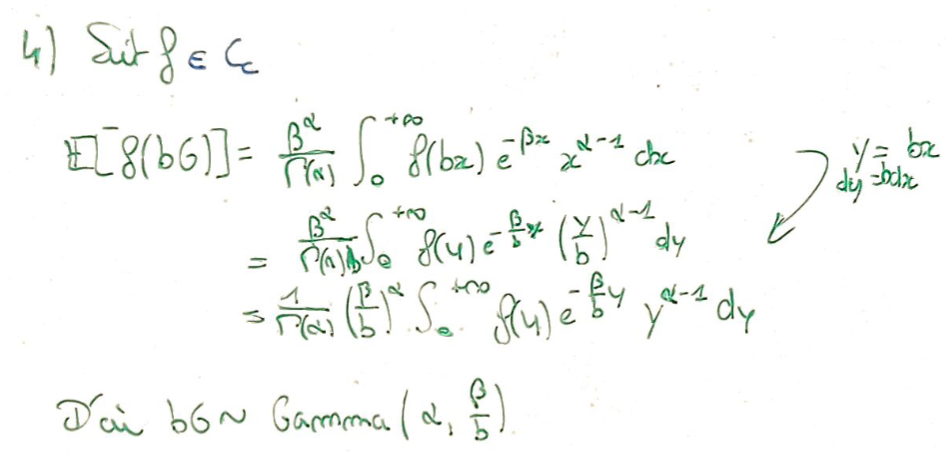 4) Soit f ∈ C_c
𝔼[f(bG)] = \frac{β^α}{Γ(α)} ∫_0^{+∞} f(bx) e^{-βx} x^{α-1} dx
y = bx
dy = bdx
= \frac{β^α}{Γ(α)b} ∫_0^{+∞} f(y) e^{-\frac{β}{b}y} (\frac{y}{b})^{α-1} dy
= \frac{1}{Γ(α)} (\frac{β}{b})^α ∫_0^{+∞} f(y) e^{-\frac{β}{b}y} y^{α-1} dy
D'où bG ~ Gamma(α, \frac{β}{b})